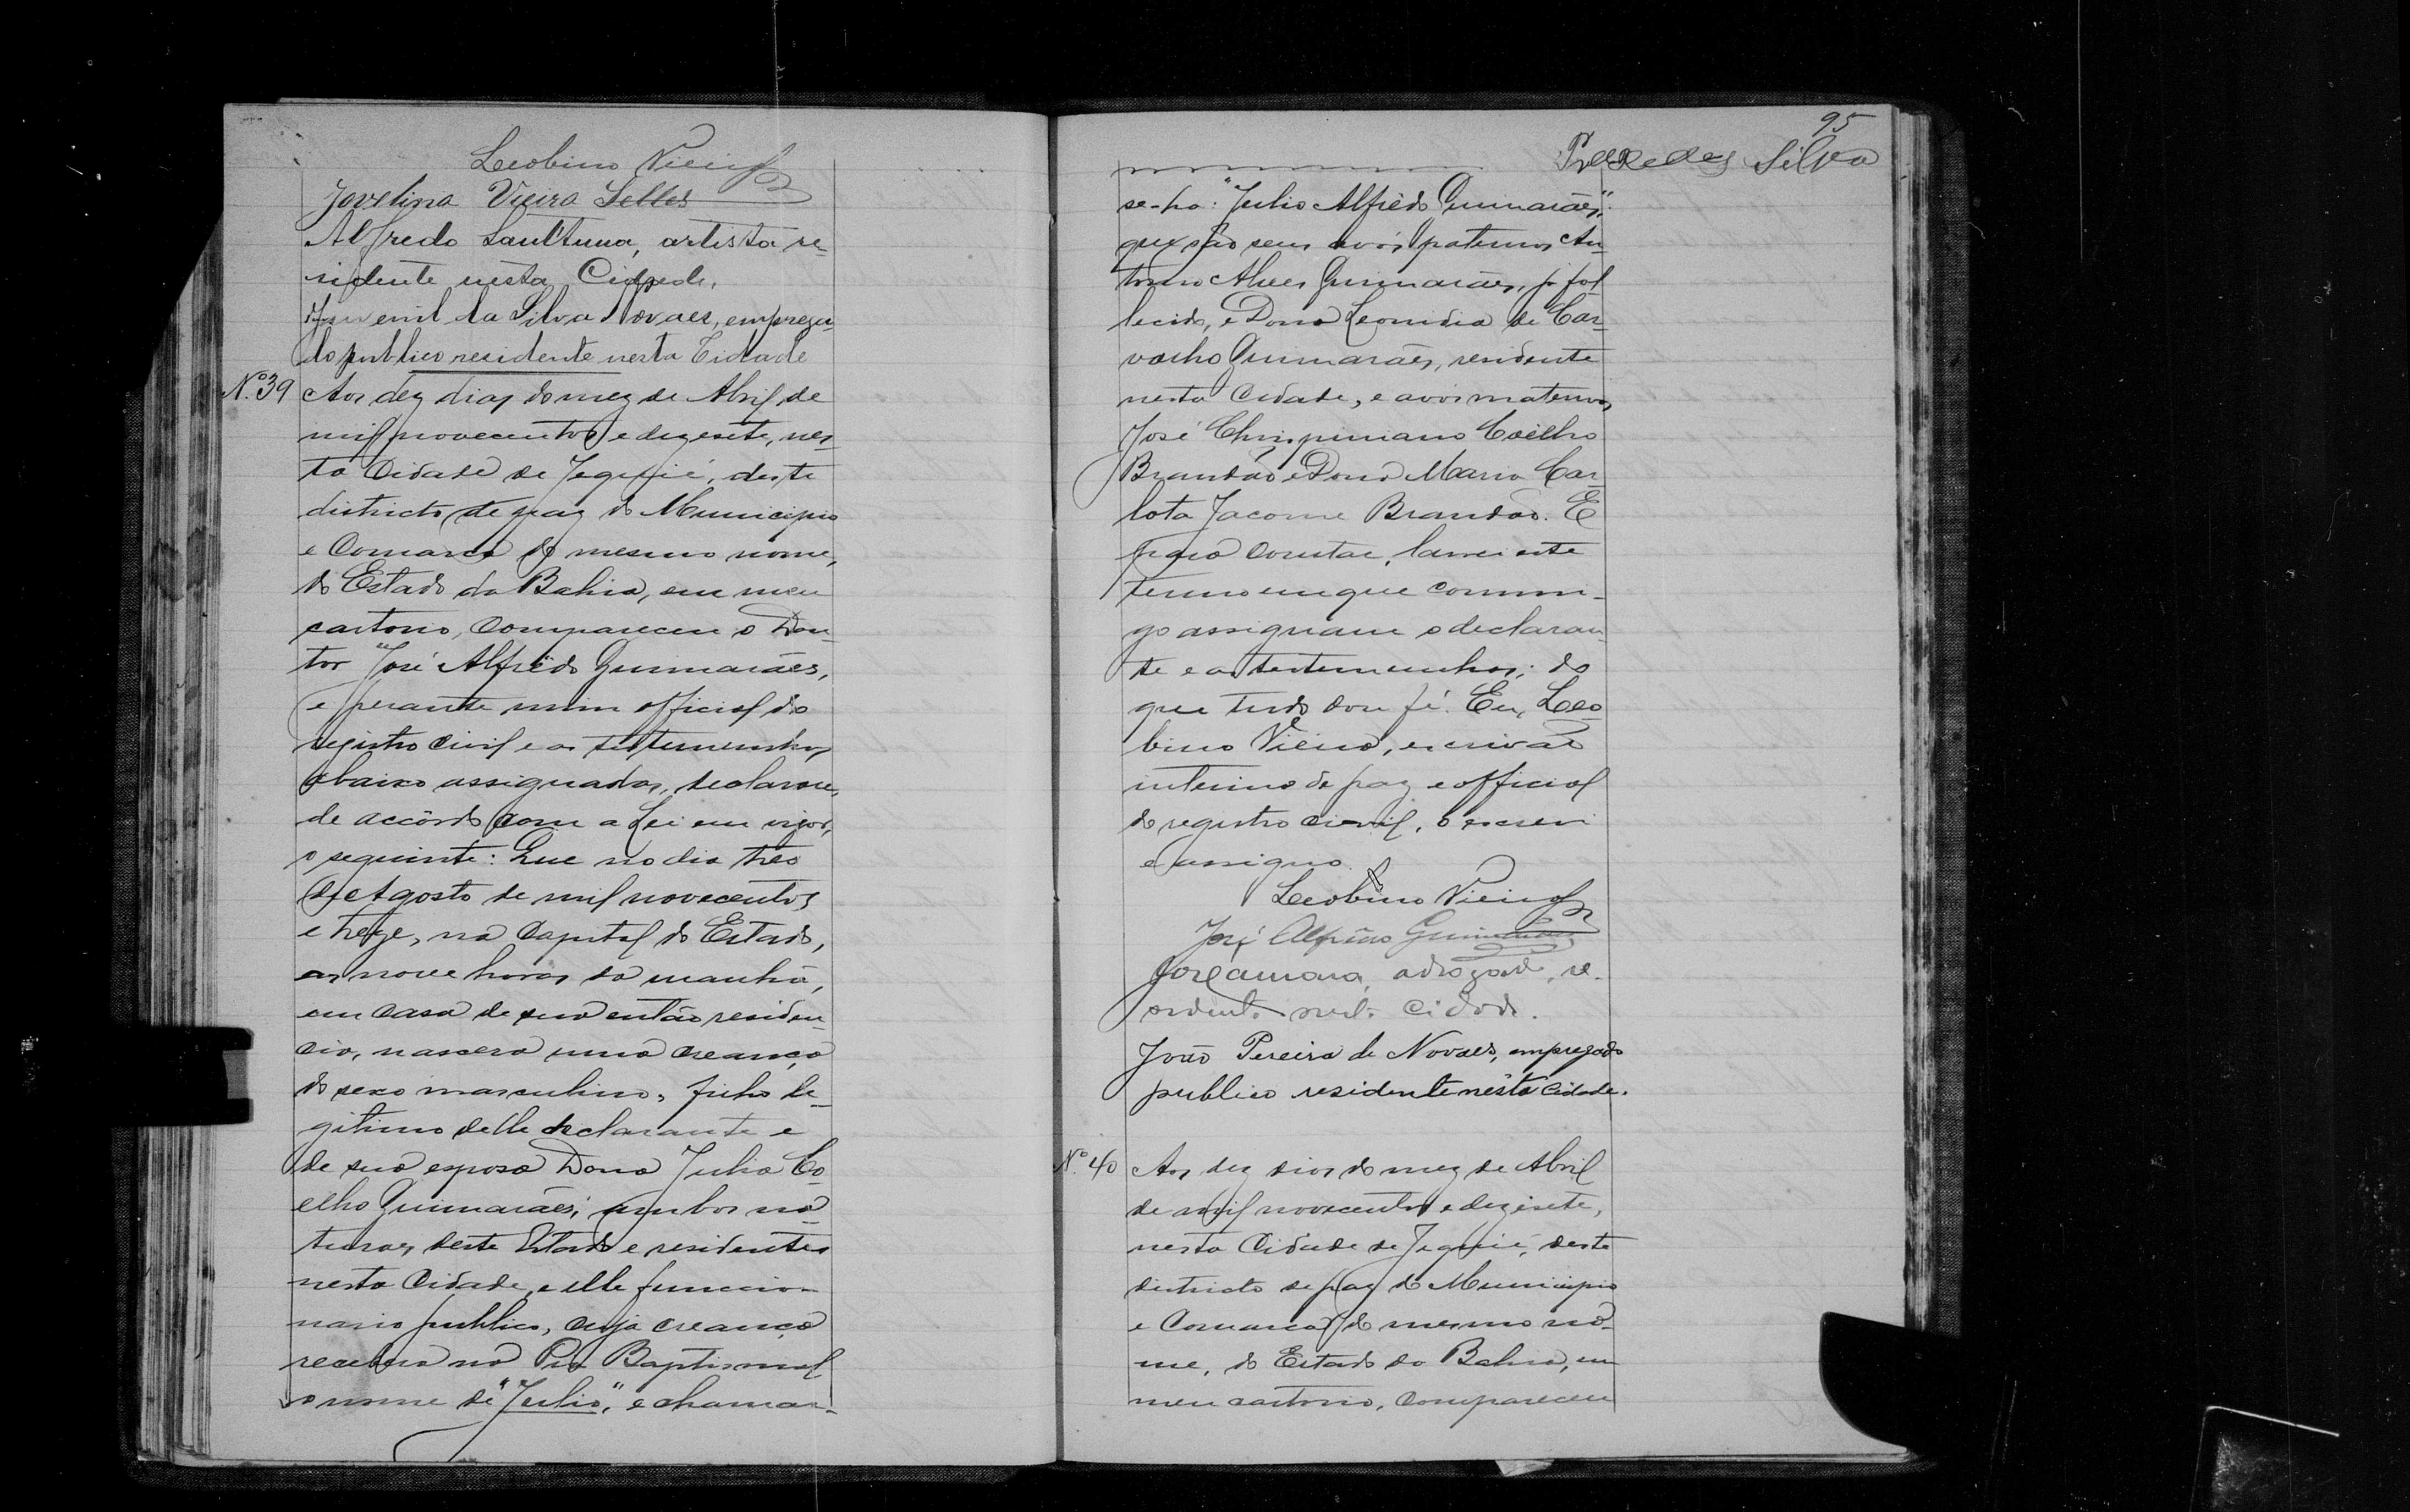 Leobino Vieira
Jovelina Vieira Selles
Alfredo Sant'Anna, artista re-
sidente nésta Cidade.
Juvenil da Silva Novaes, emprega-
do publico residente nesta Cidade
Nº 39 Aos dez dias do mez de Abril de
mil novecentos e dezesete, nes-
ta Cidade de Jequié, deste
districto de paz do Municipio
e Comarca do mesmo nome,
do Estado da Bahia, em meu
cartorio, compareceu o Dou-
tor "José Alfrêdo Guimarães,
e perante mim official do
registro civil e as testemunhas
abaixo assignadas, declarou,
de accôrdo com a Lei em vigor,
o seguinte: Que no dia tres
de Agosto de mil novecentos
e treze, na Capital do Estado,
as nove horas da manhã,
em casa de sua então residen-
cia, nascera uma creança
do sexo masculino, filho le-
gitimo delle declarante e
de sua esposa Dona Julia Co-
elho Guimarães, ambos na-
turaes deste Estado e residentes
nesta Cidade, e elle funccio-
nario publico, cuja creança
recebera na Pia Baptismal
o nome de "Julio", e chamar-
95
Paredes Silva
se-ha: "Julio Alfrêdo Guimarães":
que são seus avós paternos An-
tonio Alves Guimarães, já fal-
lecido, e Dona Leonidia de Car-
valho Guimarães, residente
nesta Cidade, e avós maternos
José Chrispiniano Coêlho
Brandão e Dona Maria Car-
lota Jacome Brandão. E
para constar, lavrei este
termo em que commi-
go assignam o declaran-
te e as testemunhas; do
que tudo dou fé. Eu, Leo-
bino Vieira, escrivão
interino de paz e official
do registro civil, o escrevi
e assigno.
Leobino Vieira
José Alfrêdo Guimarães
advogado, re-
sidente nesta cidade.
João Pereira de Novaes, empregado
publico residente nésta Cidade.
Nº 40 Aos dez dias do mez de Abril
de mil novecentos e dezesete,
nesta Cidade de Jequié, deste
districto de paz do Municipio
e Comarca do mesmo no-
me, do Estado da Bahia, em
meu cartorio, compareceu